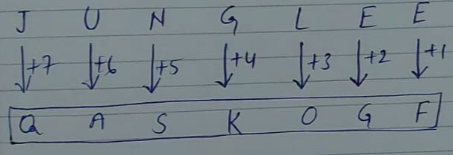 J U N G L E E
+7 +6 +5 +4 +3 +2 +1
Q A S K O G F